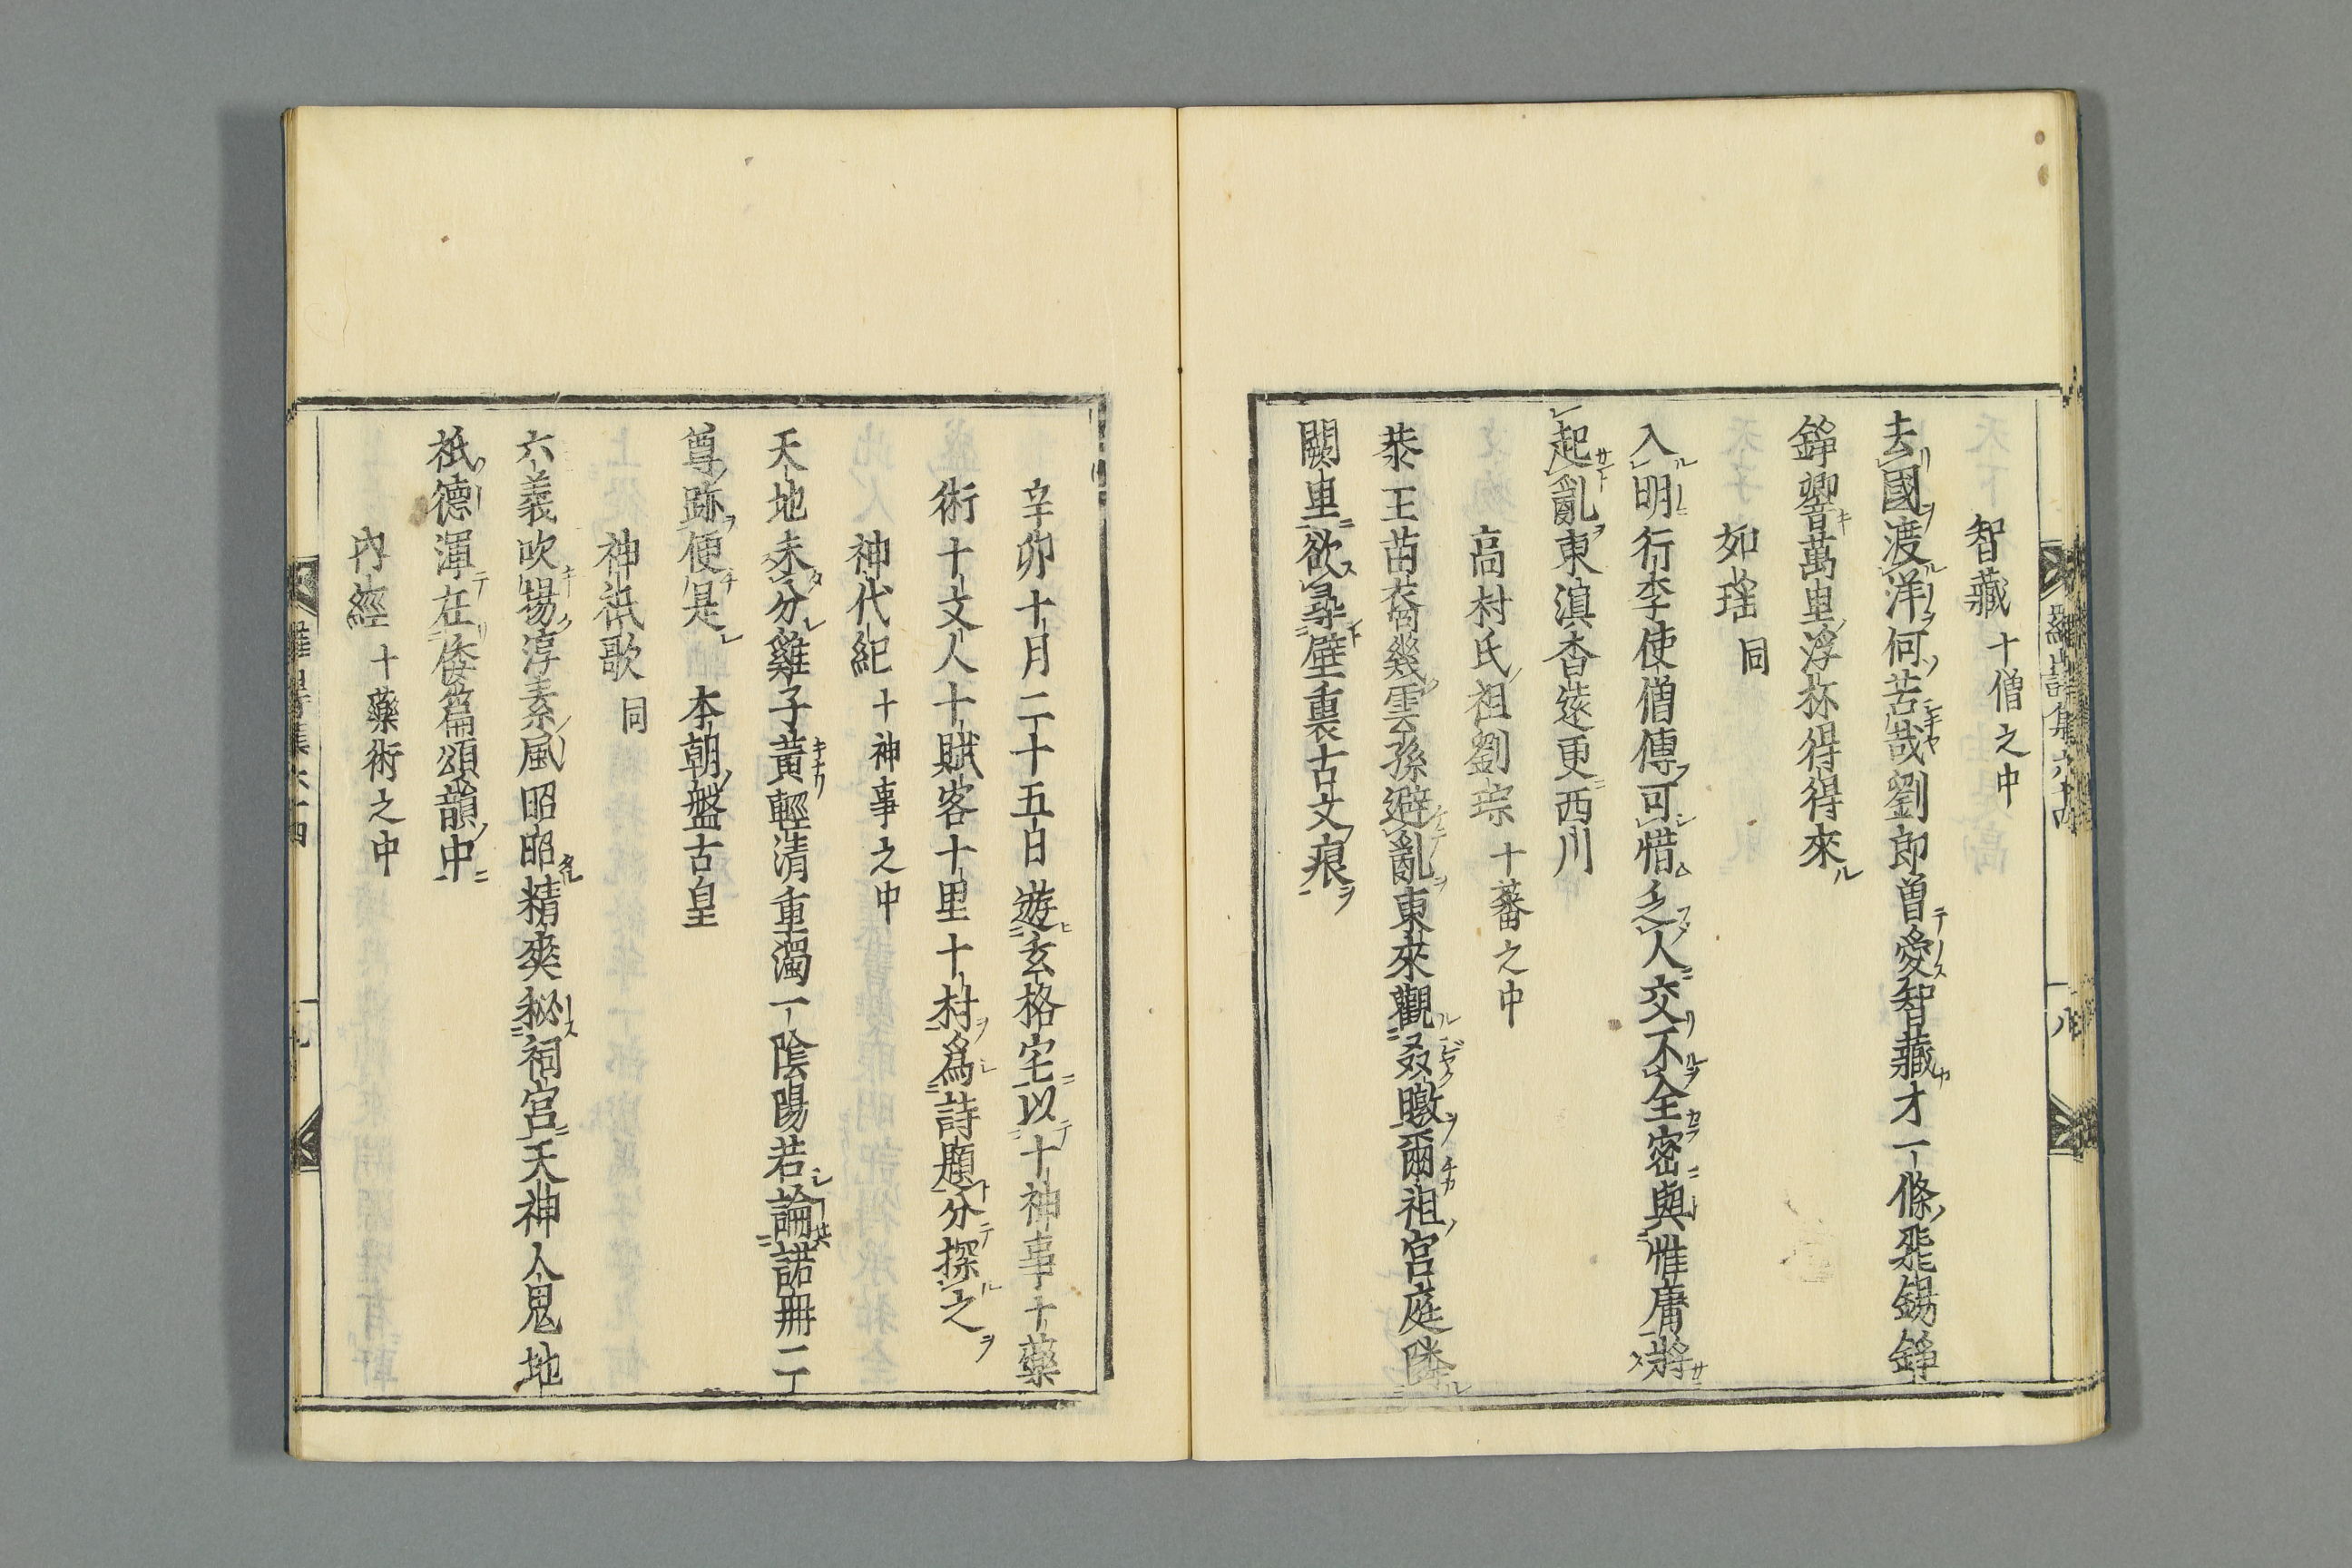 智藏 十僧之中
去國渡洋何苦哉劉郎曾愛智藏才一條飛錫錚
錚響萬里浮杯得得來
如瑤 同
入明行李使僧傳可惜乏人交不全密與惟庸將
起亂東滇杳遠更西川
高村氏祖劉琮 十蕃之中
恭王苗裔幾雲孫避亂東來觀叒暾爾祖宮庭隣
闕里欲尋壁裏古文痕
羅山詩集六十四
八
辛卯十月二十五日遊玄格宅以十神事十藥
術十文人十賦客十里十村爲詩題分探之
神代紀 十神事之中
天地未分雞子黃輕清重濁一陰陽若論諾冊二
尊跡便是 本朝盤古皇
神祇歌 同
六義吹揚淳素風昭昭精爽秘祠宮天神人鬼地
祇德渾在倭篇頌韻中
內經 十藥術之中